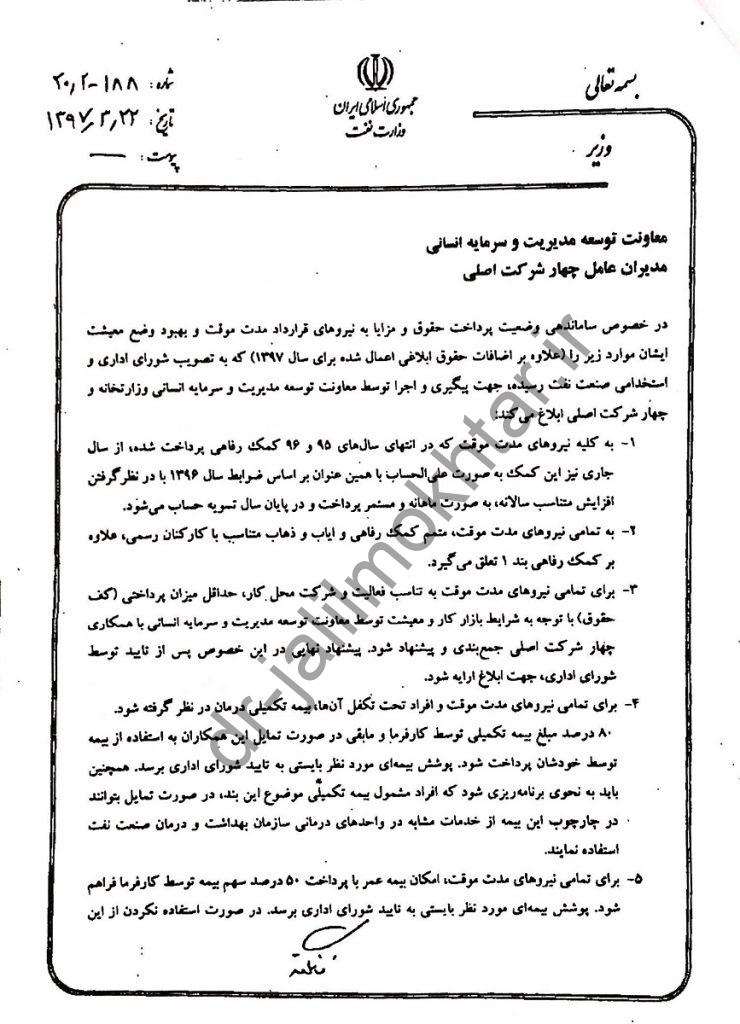 بسمه تعالی
جمهوری اسلامی ایران
وزارت نفت
وزیر
شماره: ۲۰/۲-۱۸۸
تاریخ: ۱۳۹۷/۳/۲۲
پیوست: —
معاونت توسعه مدیریت و سرمایه انسانی
مدیران عامل چهار شرکت اصلی
در خصوص ساماندهی وضعیت پرداخت حقوق و مزایا به نیروهای قرارداد مدت موقت و بهبود وضع معیشت
ایشان موارد زیر را (علاوه بر اضافات حقوق ابلاغی اعمال شده برای سال ۱۳۹۷) که به تصویب شورای اداری و
استخدامی صنعت نفت رسیده، جهت پیگیری و اجرا توسط معاونت توسعه مدیریت و سرمایه انسانی وزارتخانه و
چهار شرکت اصلی ابلاغ می‌کند:
۱- به کلیه نیروهای مدت موقت که در انتهای سال‌های ۹۵ و ۹۶ کمک رفاهی پرداخت شده، از سال
جاری نیز این کمک به صورت علی‌الحساب با همین عنوان بر اساس ضوابط سال ۱۳۹۶ با در نظرگرفتن
افزایش متناسب سالانه، به صورت ماهانه و مستمر پرداخت و در پایان سال تسویه حساب می‌شود.
۲- به تمامی نیروهای مدت موقت، متمم کمک رفاهی و ایاب و ذهاب متناسب با کارکنان رسمی، علاوه
بر کمک رفاهی بند ۱ تعلق می‌گیرد.
۳- برای تمامی نیروهای مدت موقت به تناسب فعالیت و شرکت محل کار، حداقل میزان پرداختی (کف
حقوق) با توجه به شرایط بازار کار و معیشت توسط معاونت توسعه مدیریت و سرمایه انسانی با همکاری
چهار شرکت اصلی جمع‌بندی و پیشنهاد شود. پیشنهاد نهایی در این خصوص پس از تایید توسط
شورای اداری، جهت ابلاغ ارایه شود.
۴- برای تمامی نیروهای مدت موقت و افراد تحت تکفل آن‌ها، بیمه تکمیلی درمان در نظر گرفته شود.
۸۰ درصد مبلغ بیمه تکمیلی توسط کارفرما و مابقی در صورت تمایل این همکاران به استفاده از بیمه
توسط خودشان پرداخت شود. پوشش بیمه‌ای مورد نظر بایستی به تایید شورای اداری برسد. همچنین
باید به نحوی برنامه‌ریزی شود که افراد مشمول بیمه تکمیلی موضوع این بند، در صورت تمایل بتوانند
در چارچوب این بیمه از خدمات مشابه در واحدهای درمانی سازمان بهداشت و درمان صنعت نفت
استفاده نمایند.
۵- برای تمامی نیروهای مدت موقت، امکان بیمه عمر با پرداخت ۵۰ درصد سهم بیمه توسط کارفرما فراهم
شود. پوشش بیمه‌ای مورد نظر بایستی به تایید شورای اداری برسد. در صورت استفاده نکردن از این
dr-jalilmokhtar.ir